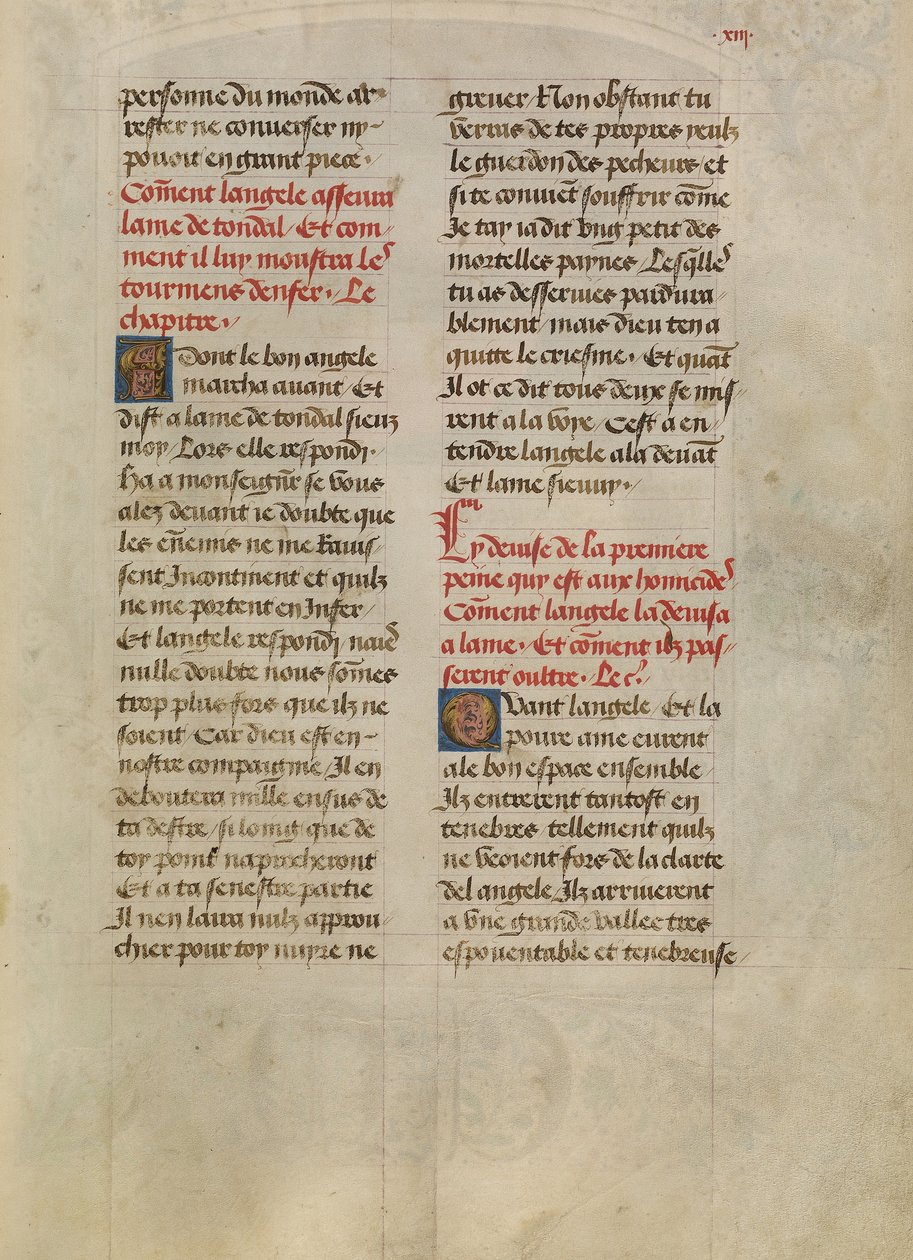 ·xiij·
personne du monde ar-
rester ne conuerser ny-
pouoit en grant piece·
Com̃ent langele asseura
lame de tondal / Et com-
ment il luy monstra le
tourmens denfer· Le
chapitre·
Adont le bon angele
marcha auant / Et
dist a lame de tondal sieuz
moy / Lors elle respondi·
ha a monseign̄r se vous
alez deuant ie doubte que
les en̄emis ne me Rauis-
sent Incontinent et quilz
ne me portent en Infer /
Et langele respondj / naie
nulle doubte nous som̃es
trop plus fors que ilz ne
soient / Car dieu est en-
nostre compaignie / Il en
deboutera mille ensus de
ta destre / si loing que de
toy point naprocheront
Et a ta senestre partie
Il nen laira nulz approu-
chier pour toy nuyre ne
greuer / Non obstant tu
verras de tes propres yeulz
le guerdon des pecheurs / et
si te conuiēt souffrir cōme
Je tay iadit vng petit des
mortelles paynes / Lesq̄lle
tu as desseruies pardura-
blement / mais dieu ten a
quitte le criesme· Et quāt
Il ot ce dit tous deux se mis-
rent a la voye / Cest a en-
tendre langele ala deuāt
Et lame sieuuy·
iiij
Cy deuise de la premiere
peine quy est aux homicide
Com̃ent langele la deuisa
a lame· Et cōment ilz pas-
serent oultre· Le c·
Quant langele / Et la
poure ame eurent
ale bon espace ensemble
Ilz entrerent tantost en
tenebres tellement quilz
ne veoient fors de la clarte
del angele / Ilz arriuerent
a vne grande vallee tres
espouentable et tenebreuse